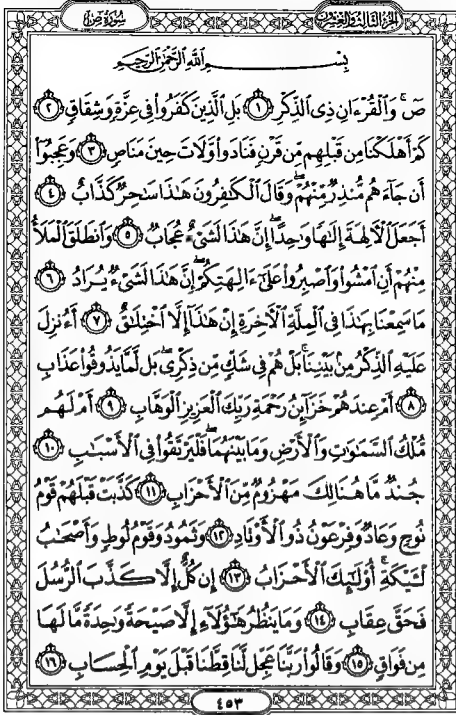 الجزء الثالث والعشرون
سورة ص
بِسْمِ اللَّهِ الرَّحْمَٰنِ الرَّحِيمِ
صٓ ۚ وَالْقُرْءَانِ ذِي الذِّكْرِ ١ بَلِ الَّذِينَ كَفَرُوا فِي عِزَّةٍ وَشِقَاقٍ ٢
كَمْ أَهْلَكْنَا مِن قَبْلِهِم مِّن قَرْنٍ فَنَادَوا وَّلَاتَ حِينَ مَنَاصٍ ٣ وَعَجِبُوٓا
أَن جَآءَهُم مُّنذِرٌ مِّنْهُمْ ۖ وَقَالَ الْكَٰفِرُونَ هَٰذَا سَٰحِرٌ كَذَّابٌ ٤
أَجَعَلَ الْآلِهَةَ إِلَٰهًا وَٰحِدًا ۖ إِنَّ هَٰذَا لَشَيْءٌ عُجَابٌ ٥ وَانطَلَقَ الْمَلَأُ
مِنْهُمْ أَنِ امْشُوا وَاصْبِرُوا عَلَىٰٓ ءَالِهَتِكُمْ ۖ إِنَّ هَٰذَا لَشَيْءٌ يُرَادُ ٦
مَا سَمِعْنَا بِهَٰذَا فِي الْمِلَّةِ الْآخِرَةِ إِنْ هَٰذَآ إِلَّا اخْتِلَٰقٌ ٧ أَءُنزِلَ
عَلَيْهِ الذِّكْرُ مِنۢ بَيْنِنَا ۚ بَلْ هُمْ فِي شَكٍّ مِّن ذِكْرِي ۖ بَل لَّمَّا يَذُوقُوا عَذَابِ
٨ أَمْ عِندَهُمْ خَزَآئِنُ رَحْمَةِ رَبِّكَ الْعَزِيزِ الْوَهَّابِ ٩ أَمْ لَهُم
مُّلْكُ السَّمَٰوَٰتِ وَالْأَرْضِ وَمَا بَيْنَهُمَا ۖ فَلْيَرْتَقُوا فِي الْأَسْبَٰبِ ١٠
جُندٌ مَّا هُنَالِكَ مَهْزُومٌ مِّنَ الْأَحْزَابِ ١١ كَذَّبَتْ قَبْلَهُمْ قَوْمُ
نُوحٍ وَعَادٌ وَفِرْعَوْنُ ذُو الْأَوْتَادِ ١٢ وَثَمُودُ وَقَوْمُ لُوطٍ وَأَصْحَٰبُ
لْـَٔيْكَةِ ۚ أُولَٰٓئِكَ الْأَحْزَابُ ١٣ إِن كُلٌّ إِلَّا كَذَّبَ الرُّسُلَ
فَحَقَّ عِقَابِ ١٤ وَمَا يَنظُرُ هَٰٓؤُلَآءِ إِلَّا صَيْحَةً وَٰحِدَةً مَّا لَهَا
مِن فَوَاقٍ ١٥ وَقَالُوا رَبَّنَا عَجِّل لَّنَا قِطَّنَا قَبْلَ يَوْمِ الْحِسَابِ ١٦
٤٥٣